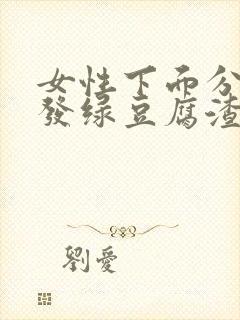 女性下面分
發绿豆腐渣
劉愛